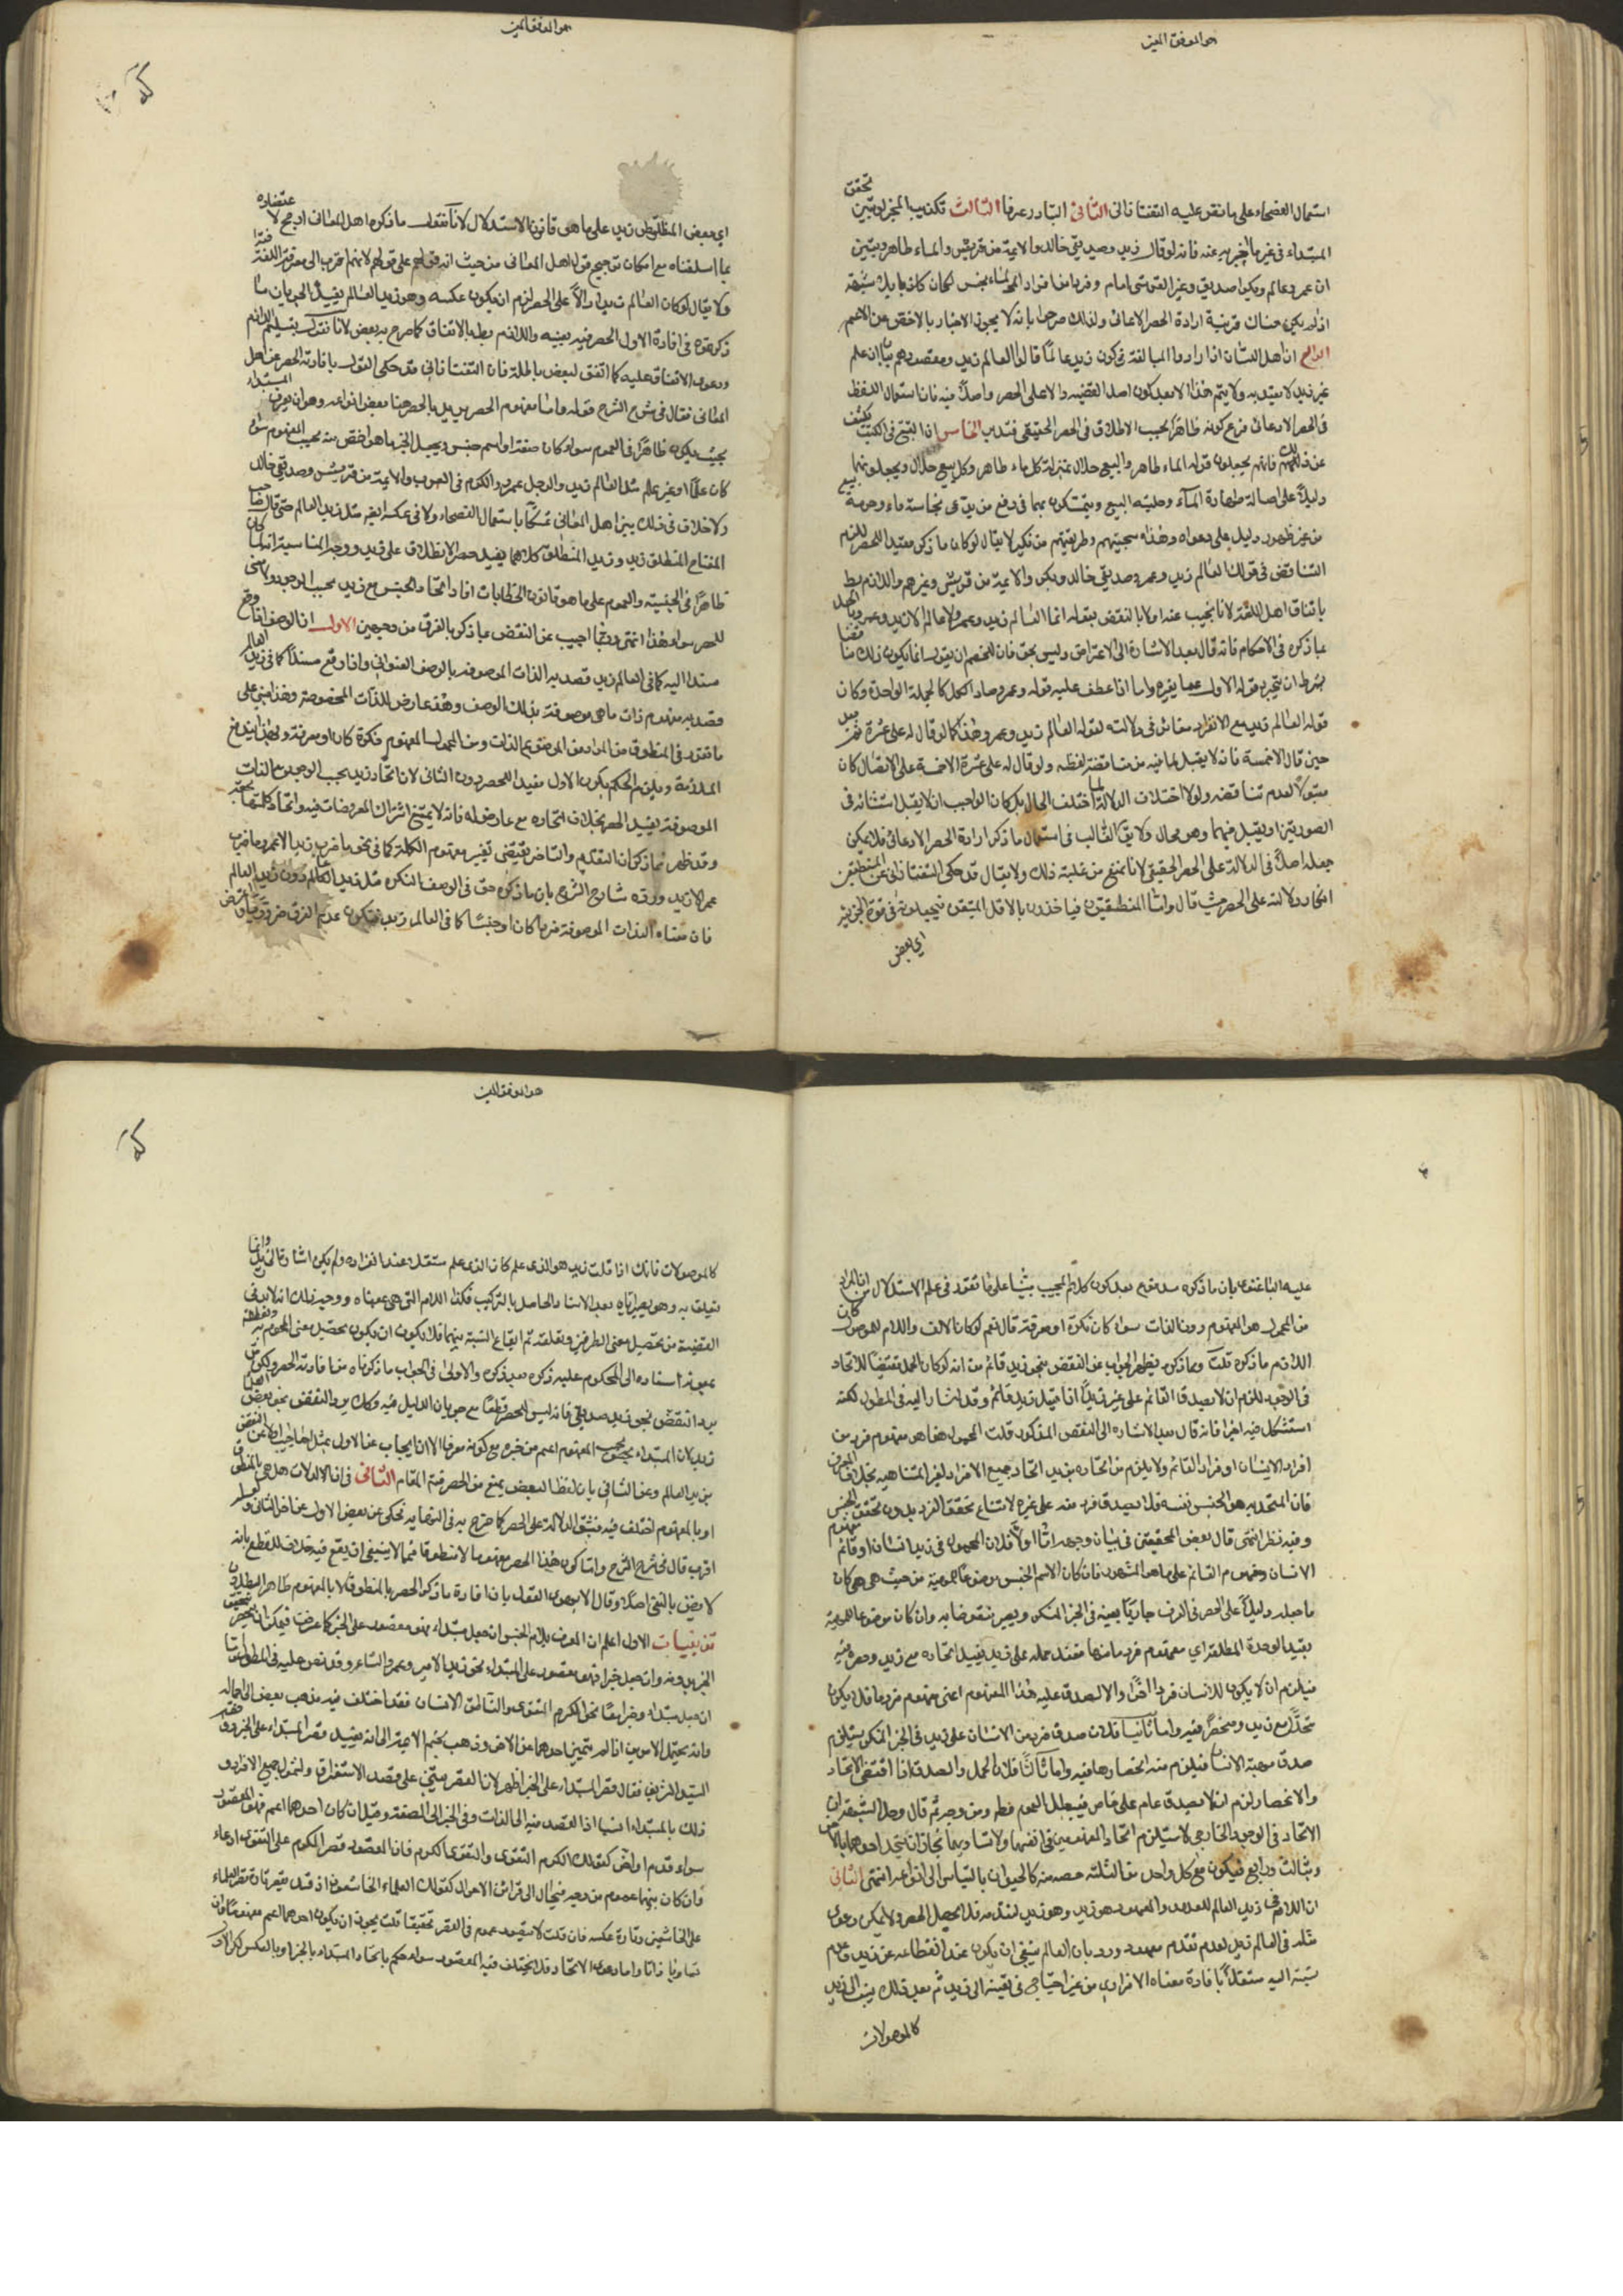 هو الموفق المعين
تحقق
استعمال الفصحاء على ما نص عليه التفتازانى الثانى التبادر عرفا الثالث تكذيب المخبر لو تبين
المبتداء فى غير ما اخبر به عنه فانه لو قال زيد وصديقى خالد والايمة من قريش والماء طاهر وتبين
ان عمر وعالم وبكرا صديق وغير القرشى امام وفردا من افراد الماء نجس لكان كاذبا بلا شبهة
اذا لم يكن هناك قرينة ارادة الحصر الادعائى ولذلك صرحوا بانه لا يجوز الاخبار بالاخص عن الاعم
الرابع ان اهل اللسان اذا ارادوا المبالغة فى كون زيد عالمًا قالوا العالم زيد ومقصودهم بيان ان علم
غير زيد لا يعتد به ولا يتم هذا الا بعد كون اصل القضية دالا على الحصر واصلًا فيه فان استعمال اللفظ
فى الحصر الادعائى فرع كونه ظاهرًا بحسب الاطلاق فى الحصر الحقيقى فتدبر الخامس اذا التتبع فى الكتب يكشف
عن ذلك فانهم يجعلون قوله الماء طاهر والبيع حلال بمنزلة كل ماء طاهر وكل بيع حلال ويجعلونها
دليلًا على اصالة طهارة الماء وحلية البيع ويتمسكون بهما فى دفع من يدعى نجاسة ماء وحرمة بيع
من غير ظهور دليل على دعواه وهذه سجيتهم وطريقتهم من نكير لا يقال لو كان ما ذكر مفيدا للحصر للزم
التناقض فى قولك العالم زيد وعمرو وصديقى خالد وبكر والايمة من قريش وغيرهم واللازم بط
باتفاق اهل اللغة لانا نجيب عنه اولا بالنقض بقوله انما العالم زيد وعمرو ولا عالم الا زيد وعمرو
بما ذكره فى الاحكام فانه قال بعد الاشارة الى الاعتراض وليس بحق فان للخصم ان يقول انما يكون ذلك مناقضا
بشرط ان يتجرد قوله الاول عما يغيره واما اذا عطف عليه قوله وعمرو صار الكل كالجملة الواحدة وكان
قوله العالم زيد مع الانفراد مغاير فى دلالته لقوله العالم زيد وعمرو وهذا كما لو قال له على عشرة ثم بعد
حين قال الا خمسة فانه لا يقبل لما فيه من مناقضة لفظه ولو قال له على عشرة الا خمسة على الاتصال كان
مقبولًا لعدم تناقضه ولولا اختلاف الدلالة لما اختلف الحال بل كان الواجب ان لا يقبل استثنائه فى
الصورتين او يقبل فيهما وهو محال ولا يق الغالب فى استعمال ما ذكر ارادة الحصر الادعائى فلا يمكن
جعله اصلًا فى الدلالة على الحصر الحقيقى لانا نمنع من غلبة ذلك ولا يقال قد حكى التفتازانى عن المنطقيين
انكار دلالته على الحصر حيث قال واما المنطقيون فياخذون بالاقل المتيقن فيجعلونه فى قوة الجزئية
اى بعض
هو الموفق المعين
اى بعض المنطلق زيد على ما هى قانون الاستدلال لانا نقول ما ذكره اهل المعانى ارجح لاعتضاده
بما اسلفناه مع امكان ترجيح قول اهل المعانى من حيث انه قولهم على قولهم لانهم اقرب الى معرفة اللغة
ولا يقال لو كان العالم زيد دالًا على الحصر لزم ان يكون عكسه وهو زيد العالم يفيد الحصر لجريان ما
ذكرتموه فى افادة الاول الحصر فيه بعينه واللازم بط بالاتفاق كما صرح به بعض لانا نقول
ودعوى الاتفاق عليه كما اتفق لبعض باطلة فان التفتازانى قد حكى القول بافادته الحصر عن اهل
المعانى فقال فى شرح الشرح قوله واما مفهوم الحصر يريد بالحصر هنا بعض انواعه وهو ان يعرف المبتداء
بحيث يكون ظاهرًا فى العموم سواء كان صفة او اسم جنس ويجعل الخبر ما هو اخص منه بحسب المفهوم سواء
كان علمًا او غير علم مثل العالم زيد والرجل عمرو والكرم فى العرب والايمة من قريش وصديقى خالد
ولا خلاف فى ذلك بين اهل المعانى تمسكًا باستعمال الفصحاء ولا فى عكسه ايضا مثل زيد العالم حتى قال صاحب
المفتاح المنطلق زيد وزيد المنطلق كلاهما يفيد حصر الانطلاق على زيد ووجه المناسبة انه لما كان
ظاهرًا فى الجنسية والعموم على ما هو قانون الخطابيات افاد اتحاد الجنس مع زيد بحسب الوجود ولا معنى
للحصر سواه هذا انتهى وربما اجيب عن النقض بما ذكر بالفرق من وجهين الاول ان الوصف اذا وقع
مسندا اليه كما فى العالم زيد قصد به الذات الموصوفه بالوصف العنوانى واذا وقع مسندًا كما فى زيد العالم
قصد به مفهوم ذات ما هى موصوفة بذلك الوصف وهذا عارض للذات المخصوصة وهذا مبنى على
ما تقرر فى المنطق من ان المراد من الموضوع الذات ومن المحمول المفهوم نكرة كان او معرفة
الملازمة ويلزم الحكم بكون الاول مفيدا للحصر دون الثانى لان اتحاد زيد بحسب الوجود مع الذات
الموصوفة يفيد الحصر بخلاف اتحاده مع عارض له فانه لا يمتنع اشتراك المعروضات فيه واتحاد كل منها
وقد ظهر مما ذكر ان التقديم والتاخير يقتضى تغيير مفهوم الكلمة كما فى نحو ما ضرب زيد الا عمرو وما ضرب
عمر الا زيد ورده شارح الشرح بان ما ذكره حق فى الوصف النكرة مثل زيد عالم دون زيد العالم
فان معناه الذات الموصوفة فردا كان او جنسًا كما فى العالم زيد فيكون عدم الفرق ضروريًا
عليه الباغنوى بان ما ذكره مدفوع بعد كون كلام المجيب بنيًا على ما تقرر فى علم الاستدلال من ان المراد
من المحمول هو المفهوم دون الذات سواء كان نكرة او معرفة قال نعم لو كان الالف واللام للموصول كان
اللازم ما ذكره قلت وبما ذكر يظهر الجواب عن النقض بنحو زيد قائم من انه لو كان الحمل مقتضيًا للاتحاد
فى الوجود للزم ان لا يصدق القائم على غير زيد اذا قيل زيد قائم وقد اشار اليه فى المطول لكنه
استشكل فيه اخيرا فانه قال بعد الاشاره الى النقض المذكور قلت المحمول هنا هو مفهوم فرد من
افراد الانسان او فرد القائم ولا يلزم من اتحاده بزيد اتحاد جميع الافراد الغير المتناهيه بخلاف المعرف
فان المتحد به هو الجنس نفسه فلا يصدق فرد منه على غيره لامتناع تحقق الفرد بدون تحقق الجنس
وفيه نظر انتهى قال بعض المحققين فى بيان وجهه امّا اولًا فلان المحمول فى زيد انسان او قائم مفهوم
الانسان ومفهوم القائم على ما هو المشهور فان كان الاسم الجنس موضوعًا للمهية من حيث هى هى كان
ما جعله دليلًا على الحصر فى المعرف جاريًا بعينه فى الخبر المنكر ويصير منقوضا به وان كان موضوعا للمهية
بقيد الوحدة المطلقة اى مفهوم فرد ما منها فعند حمله على زيد يفيد اتحاده مع زيد وحصره فيه
فيلزم ان لا يكون للانسان فردا اخرًا والا لصدق عليه هذا المفهوم اعنى مفهوم فرد ما فلا يكون
متحدًا مع زيد ومنحصرًا فيه واما ثانيا فلان صدق فرد من الانسان على زيد فى الخبر المنكر يستلزم
صدق مهية الانسان فيلزم منه انحصارها فيه واما ثالثًا فلان الحمل والصدق اذا اقتضى الاتحاد
والانحصار لزم ان لا يصدق عام على خاص فيبطل العموم مطلقا ومن وجه ثم قال وحل الشبهة ان
الاتحاد فى الوجود الخارجى لا يستلزم اتحاد المفهومين فى انفسهما ولا تساويهما فجاز ان يتحد احدهما بالاخر
وبثالث ورابع فيكون مع كل واحد من الثلثة حصه منه كالحيوان بالقياس الى انواعه انتهى الثانى
ان اللام فى زيد العالم للعهد والمعهود هو زيد وهو زيد لتقدمه فلا يحصل الحصر ولا يمكن دعوى
مثله فى العالم زيد لعدم تقدم معهود ورد بان العالم ينبغى ان يكون عند انقطاعه عن زيد وعدم
نسبته اليه مستقلًا بافادة معناه الافرادى من غير احتياج فى تعينه الى زيد ثم بعد ذلك ينسب الى زيد
كالموصولات
هو الموفق المعين
كالموصولات فانك اذا قلت زيد هو الذى علم كان الذى علم مستقلا عند انفراده ولم يكن اشارة الى زيد وانما
يتعلق به وهو يصير اياه بعد الاسناد والحاصل بالتركيب فكذا اللام التى هى بمعناه ووجه ذلك انه لا بد فى
القضية من تحصيل معنى الطرفين وتعلقه ثم ايقاع النسبة بينهما فلا يكون ان يكون تحصيل معنى المحكوم به
بمعونة اسناده الى المحكوم عليه ذكره بعد ذكره والاولى فى الجواب ما ذكرناه من افادته الحصر ولكن
يرد النقض بنحو زيد صديقى فانه ليس للحصر قطعًا مع جريان الدليل فيه وكذلك يرد النقض بنحو بعض
زيد لان المبتداء بحسب المفهوم اعم من خبره مع كونه معرفا الا ان يجاب عن الاول بمثل ما اجيب به عن النقض
بزيد العالم وعن الثانى بان لفظ البعض يمنع من الحصر فيه المقام الثانى فى ان الدلالات هل هى بالمنطوق
او بالمفهوم اختلف فيه مثبتوا الدلالة على الحصر كما صرح به فى النهايه فحكى عن بعض الاول وعن اخر الثانى
اقرب قال فى شرح الشرح واما كون هذا الحصر مفهوما لا منطوقا فمما لا ينبغى ان يقع فيه خلاف للقطع بانه
لا ينطق بالنفى اصلًا وقال الابهرى القول بان افادة ما ذكر الحصر بالمنطوق لا بالمفهوم ظاهر البطلان
تذنيبات الاول اعلم ان المعرف بلام الجنس ان جعل مبتداء فهو مقصور على الخبر كما عرفت
الخبر به وان جعل خبرا فهو مقصور على المبتداء نحو زيد الامير وعمرو الشاعر وقد نص عليه فى المطول
ان جعل مبتداء وخبرا ايضًا نحو الكرم التقوى والعالم الانسان فقد اختلف فيه فذهب بعض الى
وانه يحتمل الامرين اذا لم يتميز احدهما عن الاخر وذهب نجم الائمة الى انه يفيد قصر المبتداء على الخبر
السيد الشريف فقال قصر المبتداء على الخبر اظهر لان القصر مبنى على قصد الاستغراق وشمول جميع الافراد و
ذلك بالمبتداء انسب اذ القصد فيه الى الذات وفى الخبر الى الصفة وقيل ان كان احدهما اعم فهو المقصور
سواء قدم او اخر كقولك الكرم التقوى والتقوى الكرم فان المقصود قصر الكرم على التقوى ادعاء
وان كان بينهما عموم من وجه فيحال الى قرائن الاحوال كقولك العلماء الخاشعون اذ قد يقصد تارة قصر العلماء
على الخاشعين وتارة عكسه فان قلت لا يتصور عموم فى القصر تحقيقا قلت يجوز ان يكون احدهما اعم مفهومًا وان
تساويا ذاتا واما دعوى الاتحاد فلا يختلف فيه المقصود سواء حكم باتحاد المبتداء بالخبر او بالعكس